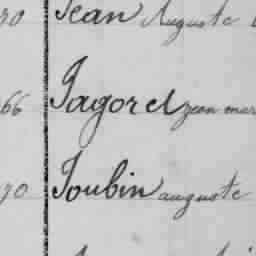 70 Jean Auguste
66 Jagorel jean mar
70 Joubin auguste